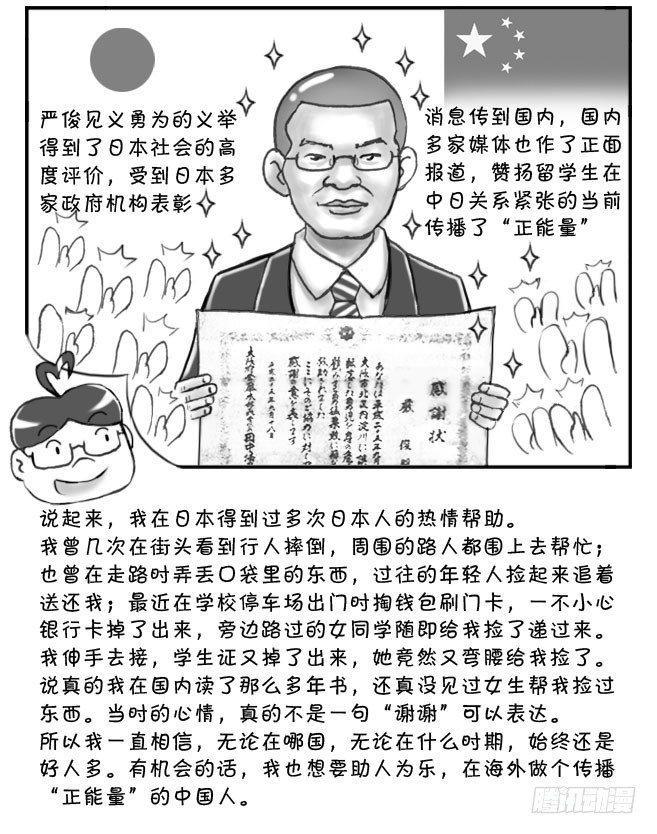 严俊见义勇为的义举
得到了日本社会的高
度评价，受到日本多
家政府机构表彰
消息传到国内，国内
多家媒体也作了正面
报道，赞扬留学生在
中日关系紧张的当前
传播了“正能量”
感謝状
厳 俊
説起来，我在日本得到过多次日本人的热情帮助。
我曾几次在街头看到行人摔倒，周围的路人都围上去帮忙；
也曾在走路时弄丢口袋里的东西，过往的年轻人捡起来追着
送还我；最近在学校停车场出门时掏钱包刷门卡，一不小心
银行卡掉了出来，旁边路过的女同学随即给我捡了递过来。
我伸手去接，学生证又掉了出来，她竟然又弯腰给我捡了。
说真的我在国内读了那么多年书，还真没见过女生帮我捡过
东西。当时的心情，真的不是一句“谢谢”可以表达。
所以我一直相信，无论在哪国，无论在什么时期，始终还是
好人多。有机会的话，我也想要助人为乐，在海外做个传播
“正能量”的中国人。
腾讯动漫